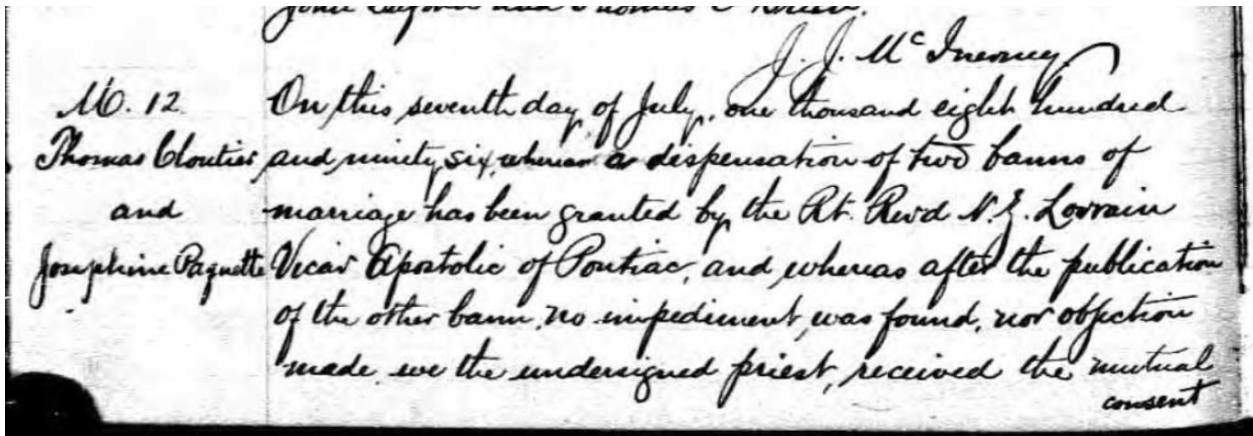 J. J. McInerney
M. 12.
Thomas Cloutier
and
Josephine Paquette
On this seventh day of July, one thousand eight hundred
and ninety six, whereas a dispensation of two banns of
marriage has been granted by the Rt. Revd N. Z. Lorrain
Vicar Apostolic of Pontiac, and whereas after the publication
of the other bann, no impediment was found, nor objection
made, we the undersigned priest, received the mutual
consent